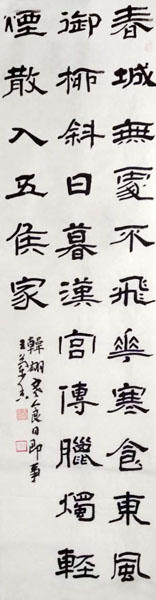 春城無處不飛華寒食東風
御柳斜日暮漢宮傳臘燭輕
煙散入五侯家
韓翃寒食日即事